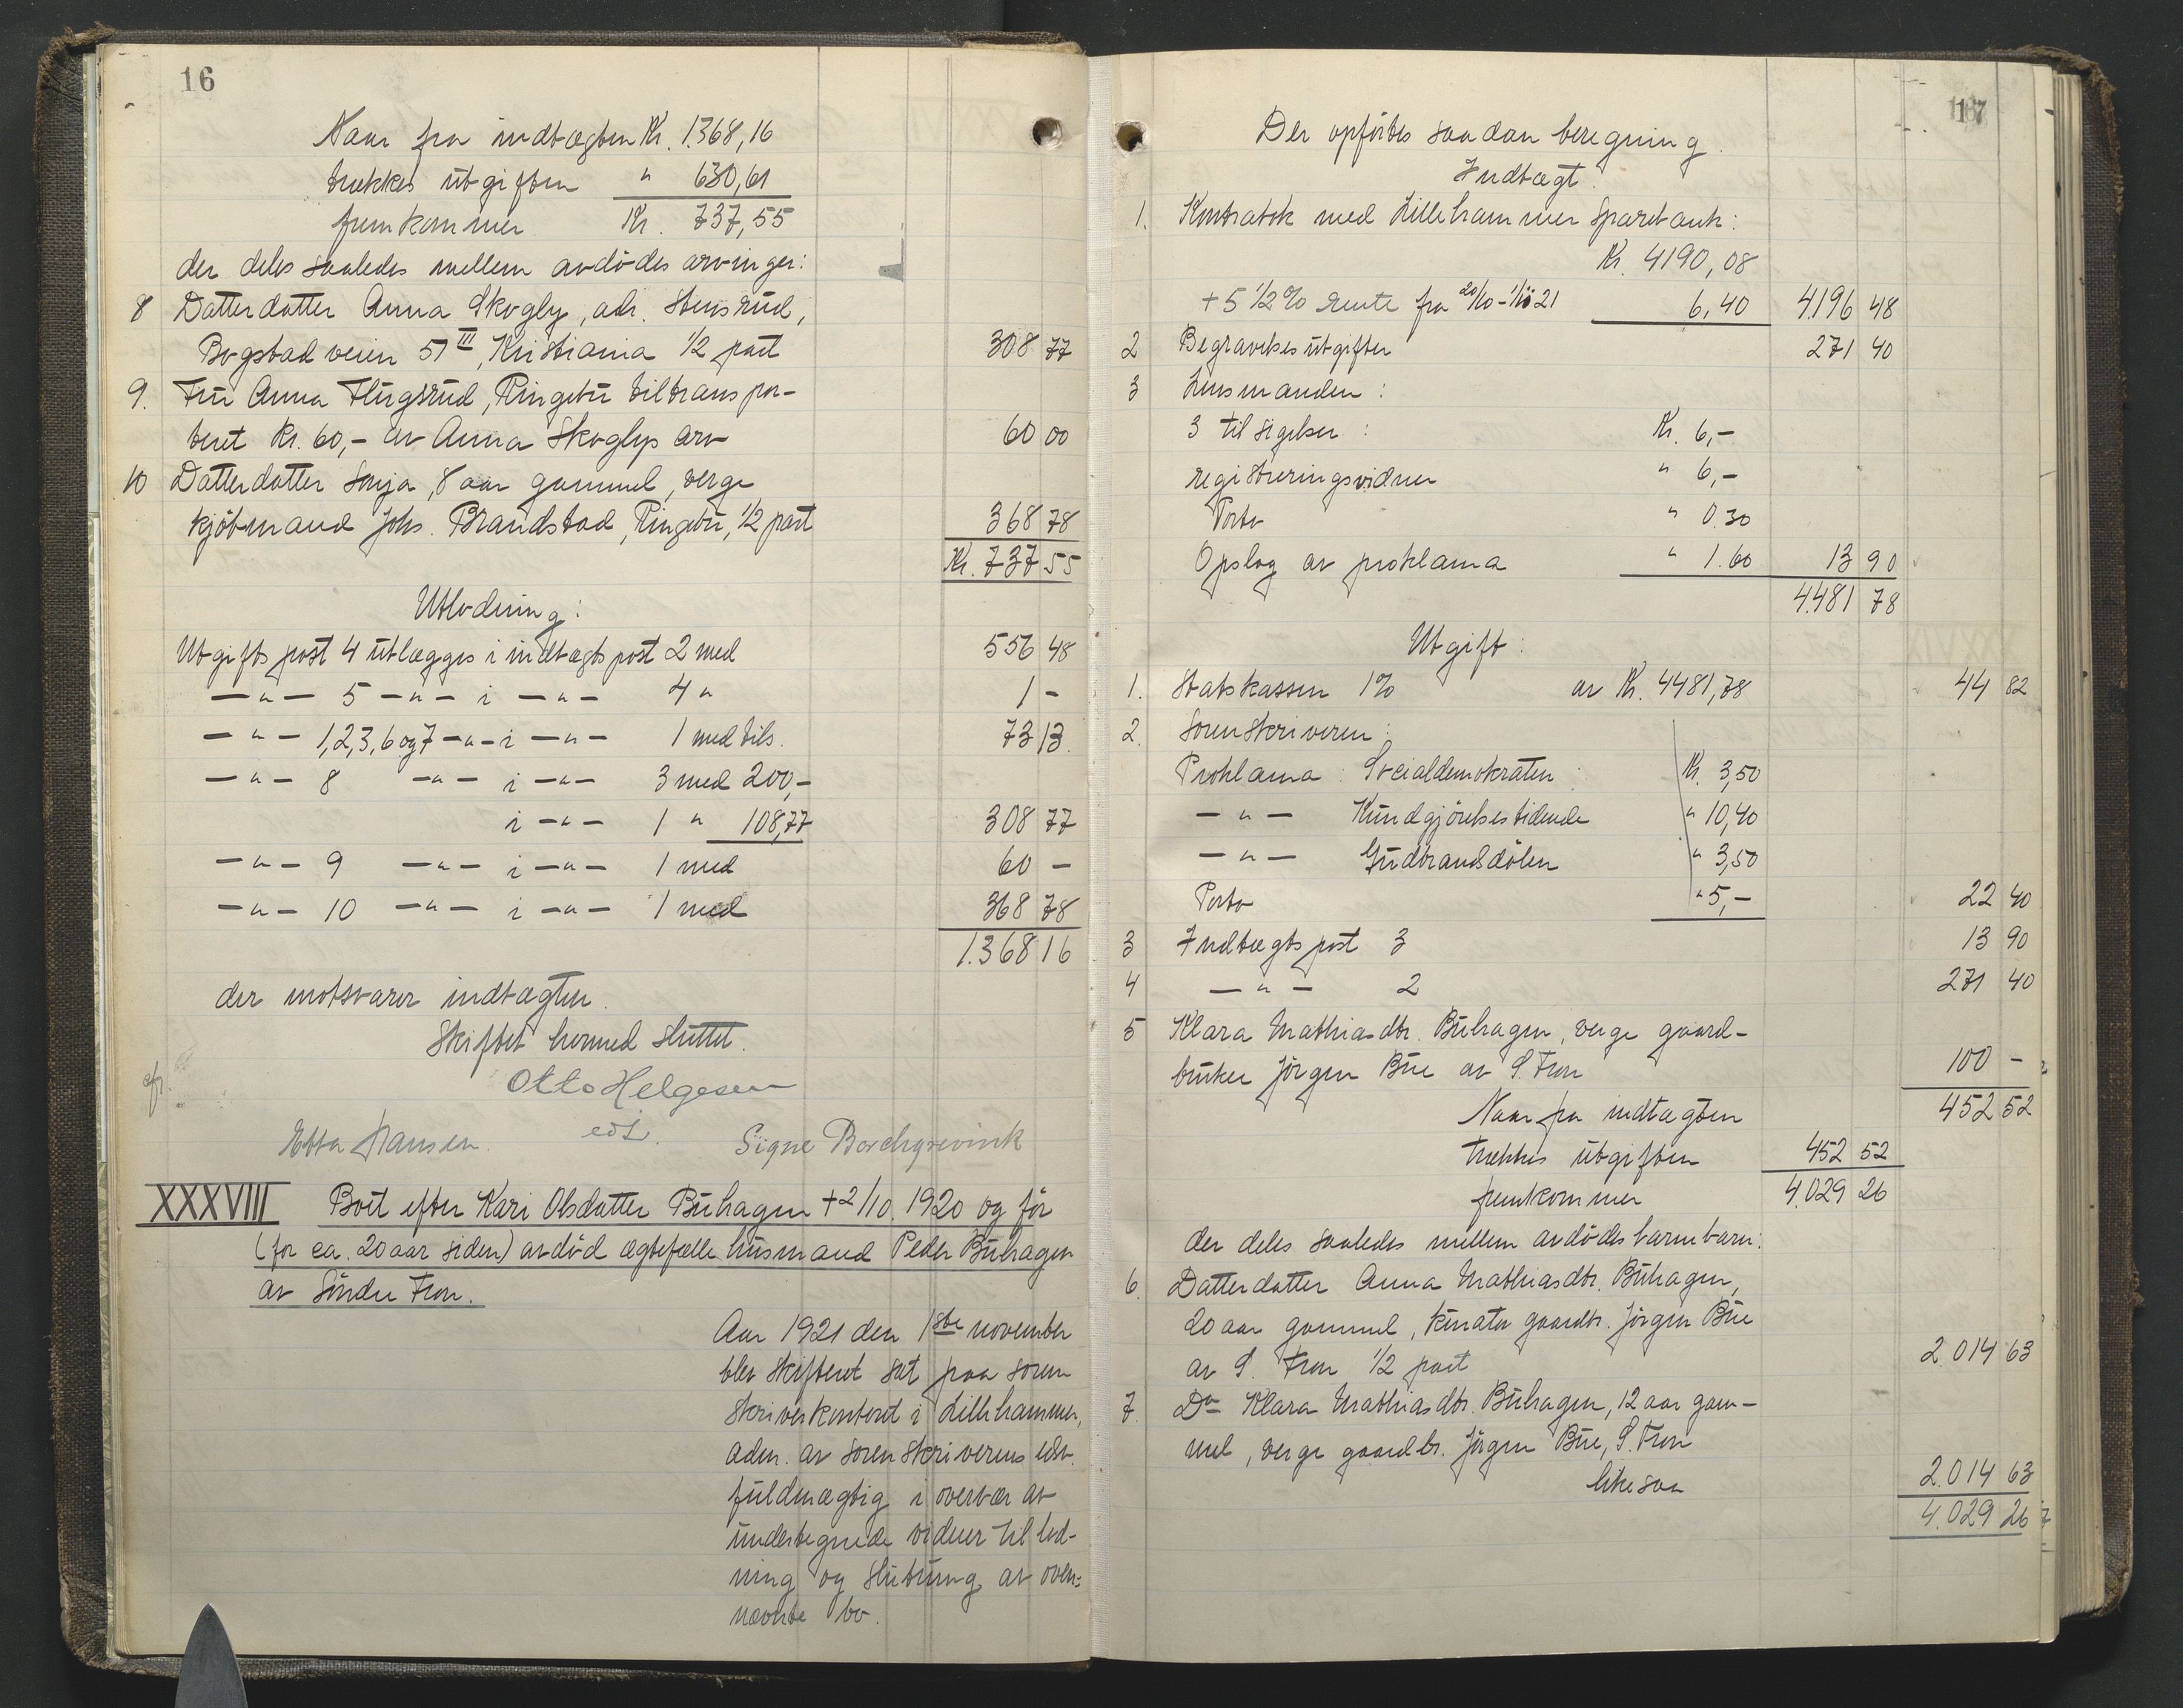 16
Naar fra indtægten Kr. 1.368,16
trækkes utgiften " 630,61
fremkommer Kr. 737,55
der deles saaledes mellem avdødes arvinger:
8 Datterdatter Anna Skogly, adr. Stensrud,
Bogstadveien 51 III, Kristiania 1/2 part 308 77
9. Fru Anna Flugsrud, Ringebu tiltranspor-
teret Kr. 60,- av Anna Skoglys arv 60 00
10 Datterdatter Sonja, 8 aar gammel, verge
kjøbmand Johs. Brandstad, Ringebu, 1/2 part 368 78
Kr. 737 55
Utlodning:
Utgiftspost 4 utlægges i indtægtspost 2 med 556 48
—"— 5 —"— i —"— 4 " 1 -
—"— 1,2,3,6 og 7 —"— i —"— 1 med tils. 73 13
—"— 8 —"— i —"— 3 med 200,-
i —"— 1 " 108,77 308 77
—"— 9 —"— i —"— 1 med 60 -
—"— 10 —"— i —"— 1 med 368 78
1.368 16
der motsvarer indtægten.
Skiftet hermed sluttet.
Otto Helgesen
edf.
Ebba Hansen. Signe Borchgrevink
XXXVIII Boet efter Kari Olsdatter Buhagen + 2/10. 1920 og før
(for ca. 20 aar siden) avdød ægtefælle husmand Peder Buhagen
av Søndre Fron.
Aar 1921 den 1ste november
blev skifteret sat paa soren
skriverkontoret i Lillehammer,
adm. av sorenskriverens edsv.
fuldmægtig i overvær av
undertegnede vidner til lod-
ning og slutning av oven-
nævnte bo.
17
Der opførtes saadan beregning.
Indtægt.
1. Kontrabok med Lillehammer Sparebank:
Kr. 4190,08
+ 5 1/2 % rente fra 20/10-1/11 21 6,40 4.196 48
2 Begravelsesutgifter 271 40
3 Lensmanden:
3 tilsigelser: Kr. 6,-
registreringsvidner " 6,-
Porto " 0.30
Opslag av proklama " 1.60 13 90
4.481 78
Utgift:
1. Statskassen 1% av Kr. 4481,78 44 82
2. Sorenskriveren:
Proklama: Socialdemokraten: Kr. 3,50
—"— Kundgjørelsestidende " 10,40
—"— Gudbrandsdølen " 3,50
Porto " 5,- 22 40
3 Indtægtspost 3 13 90
4 —"— 2 271 40
5 Klara Mathiasdtr. Buhagen, verge gaard-
bruker Jørgen Bue av S. Fron 100 -
Naar fra indtægten 452 52
trækkes utgiften 452 52
fremkommer 4.029 26
der deles saaledes mellem avdødes barnebarn:
6. Datterdatter Anna Mathiasdtr. Buhagen,
20 aar gammel, kurator gaardbr. Jørgen Bue
av S. Fron 1/2 part 2.014 63
7. Do Klara Mathiasdtr. Buhagen, 12 aar gam-
mel, verge gaardbr. Jørgen Bue, S. Fron
likesaa 2.014 63
4.029 26